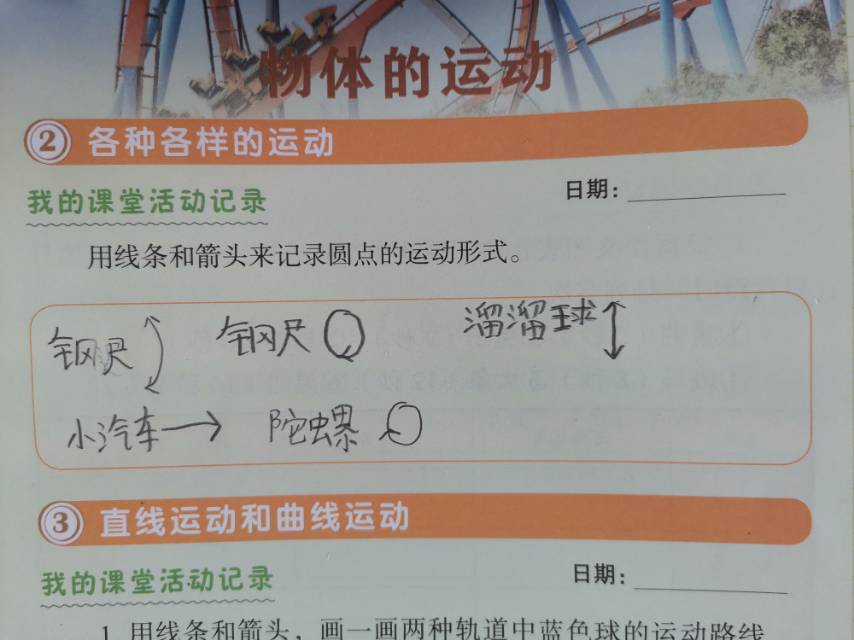 物体的运动
2 各种各样的运动
我的课堂活动记录 日期：
用线条和箭头来记录圆点的运动形式。
钢尺 钢尺 溜溜球
小汽车 陀螺
3 直线运动和曲线运动
我的课堂活动记录 日期：
1. 用线条和箭头，画一画两种轨道中蓝色球的运动路线